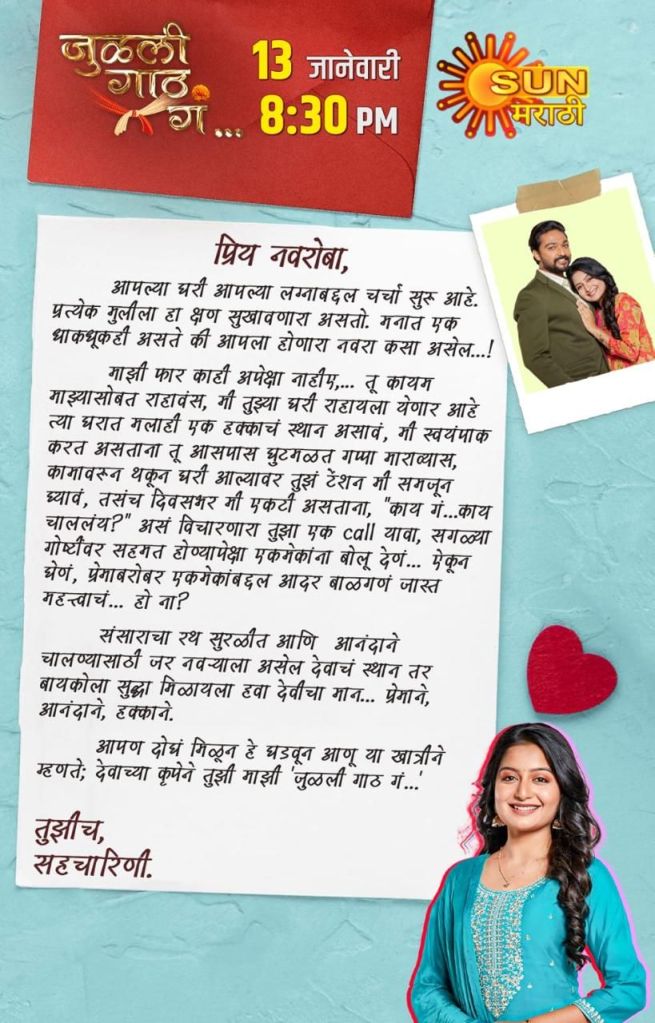 जुळली
गाठ
गं...
13 जानेवारी
8:30 PM
SUN
मराठी
प्रिय नवरोबा,
आपल्या घरी आपल्या लग्नाबद्दल चर्चा सुरू आहे.
प्रत्येक मुलीला हा क्षण सुखावणारा असतो. मनात एक
धाकधूकही असते की आपला होणारा नवरा कसा असेल...!
माझी फार काही अपेक्षा नाहीए,... तू कायम
माझ्यासोबत राहावंस, मी तुझ्या घरी राहायला येणार आहे
त्या घरात मलाही एक हक्काचं स्थान असावं, मी स्वयंपाक
करत असताना तू आसपास घुटमळत गप्पा माराव्यास,
कामावरून थकून घरी आल्यावर तुझं टेंशन मी समजून
घ्यावं, तसंच दिवसभर मी एकटी असताना, "काय गं...काय
चाललंय?" असं विचारणारा तुझा एक call यावा, सगळ्या
गोष्टींवर सहमत होण्यापेक्षा एकमेकांना बोलू देणं... ऐकून
घेणं, प्रेमाबरोबर एकमेकांबद्दल आदर बाळगणं जास्त
महत्त्वाचं... हो ना?
संसाराचा रथ सुरळीत आणि आनंदाने
चालण्यासाठी जर नवऱ्याला असेल देवाचं स्थान तर
बायकोला सुद्धा मिळायला हवा देवीचा मान... प्रेमाने,
आनंदाने, हक्काने.
आपण दोघं मिळून हे घडवून आणू या खात्रीने
म्हणते; देवाच्या कृपेने तुझी माझी 'जुळली गाठ गं...'
तुझीच,
सहचारिणी.